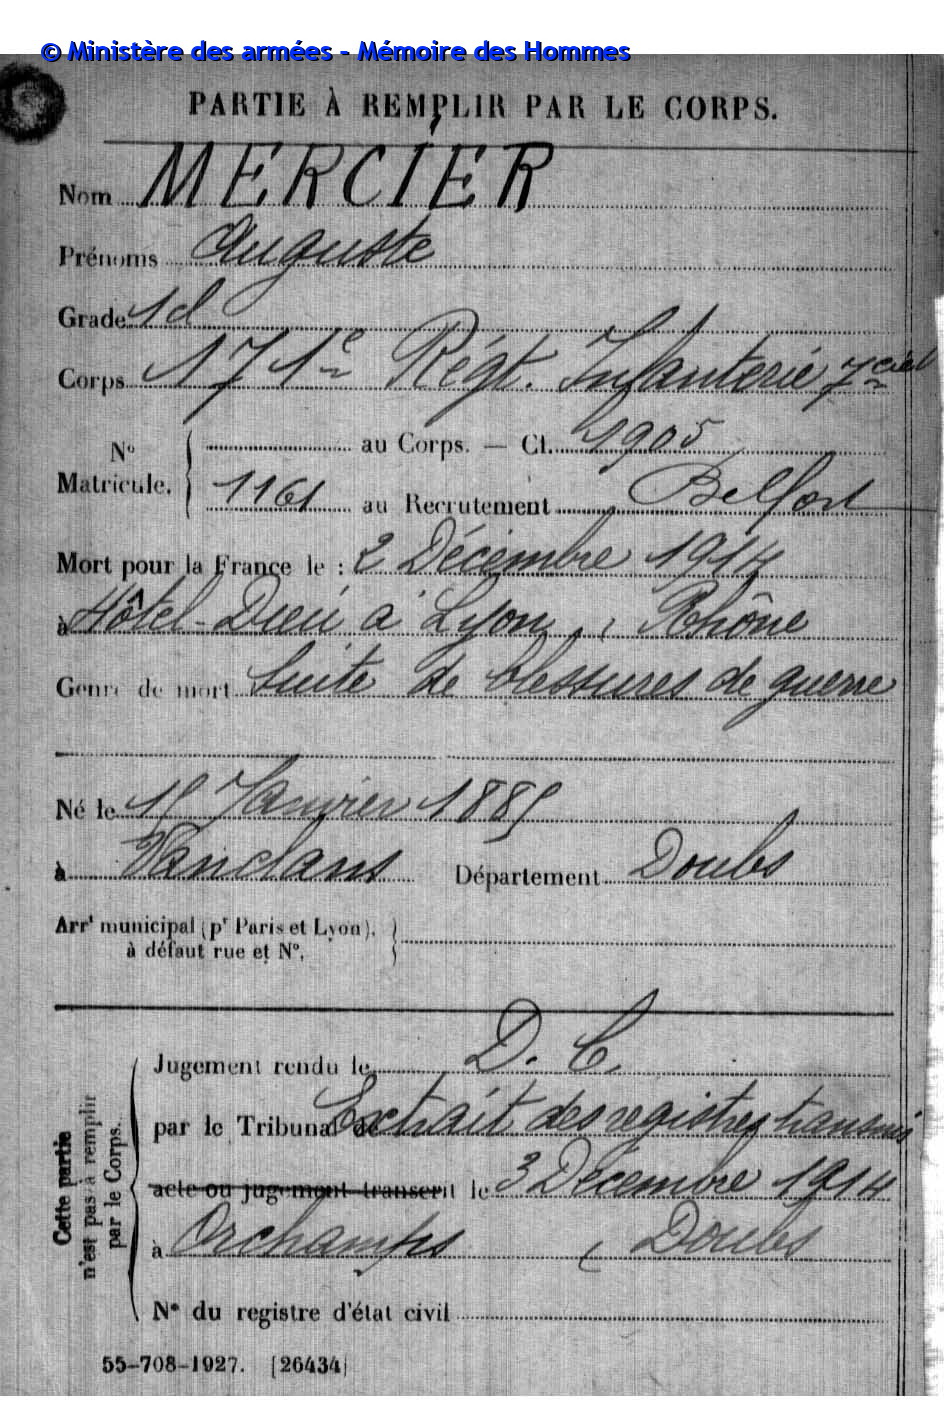 © Ministère des armées - Mémoire des Hommes
PARTIE À REMPLIR PAR LE CORPS.
Nom MERCIER
Prénoms Auguste
Grade
Corps 171e Régt. Infanterie 7e Cie
No
Matricule. au Corps. — Cl. 1905
1161 au Recrutement Belfort
Mort pour la France le : 2 Décembre 1914
à Hôtel-Dieu à Lyon, Rhône
Genre de mort Suite de blessures de guerre
Né le Janvier 1885
à Vanclans Département Doubs
Arrt municipal (pr Paris et Lyon),
à défaut rue et N°.
Cette partie
n'est pas à remplir
par le Corps.
Jugement rendu le D. C.
par le Tribunal de Extrait des registres transmis
acte ou jugement transcrit le 3 Décembre 1914
à Orchamps, Doubs
N° du registre d'état civil
55-708-1927. [26434]